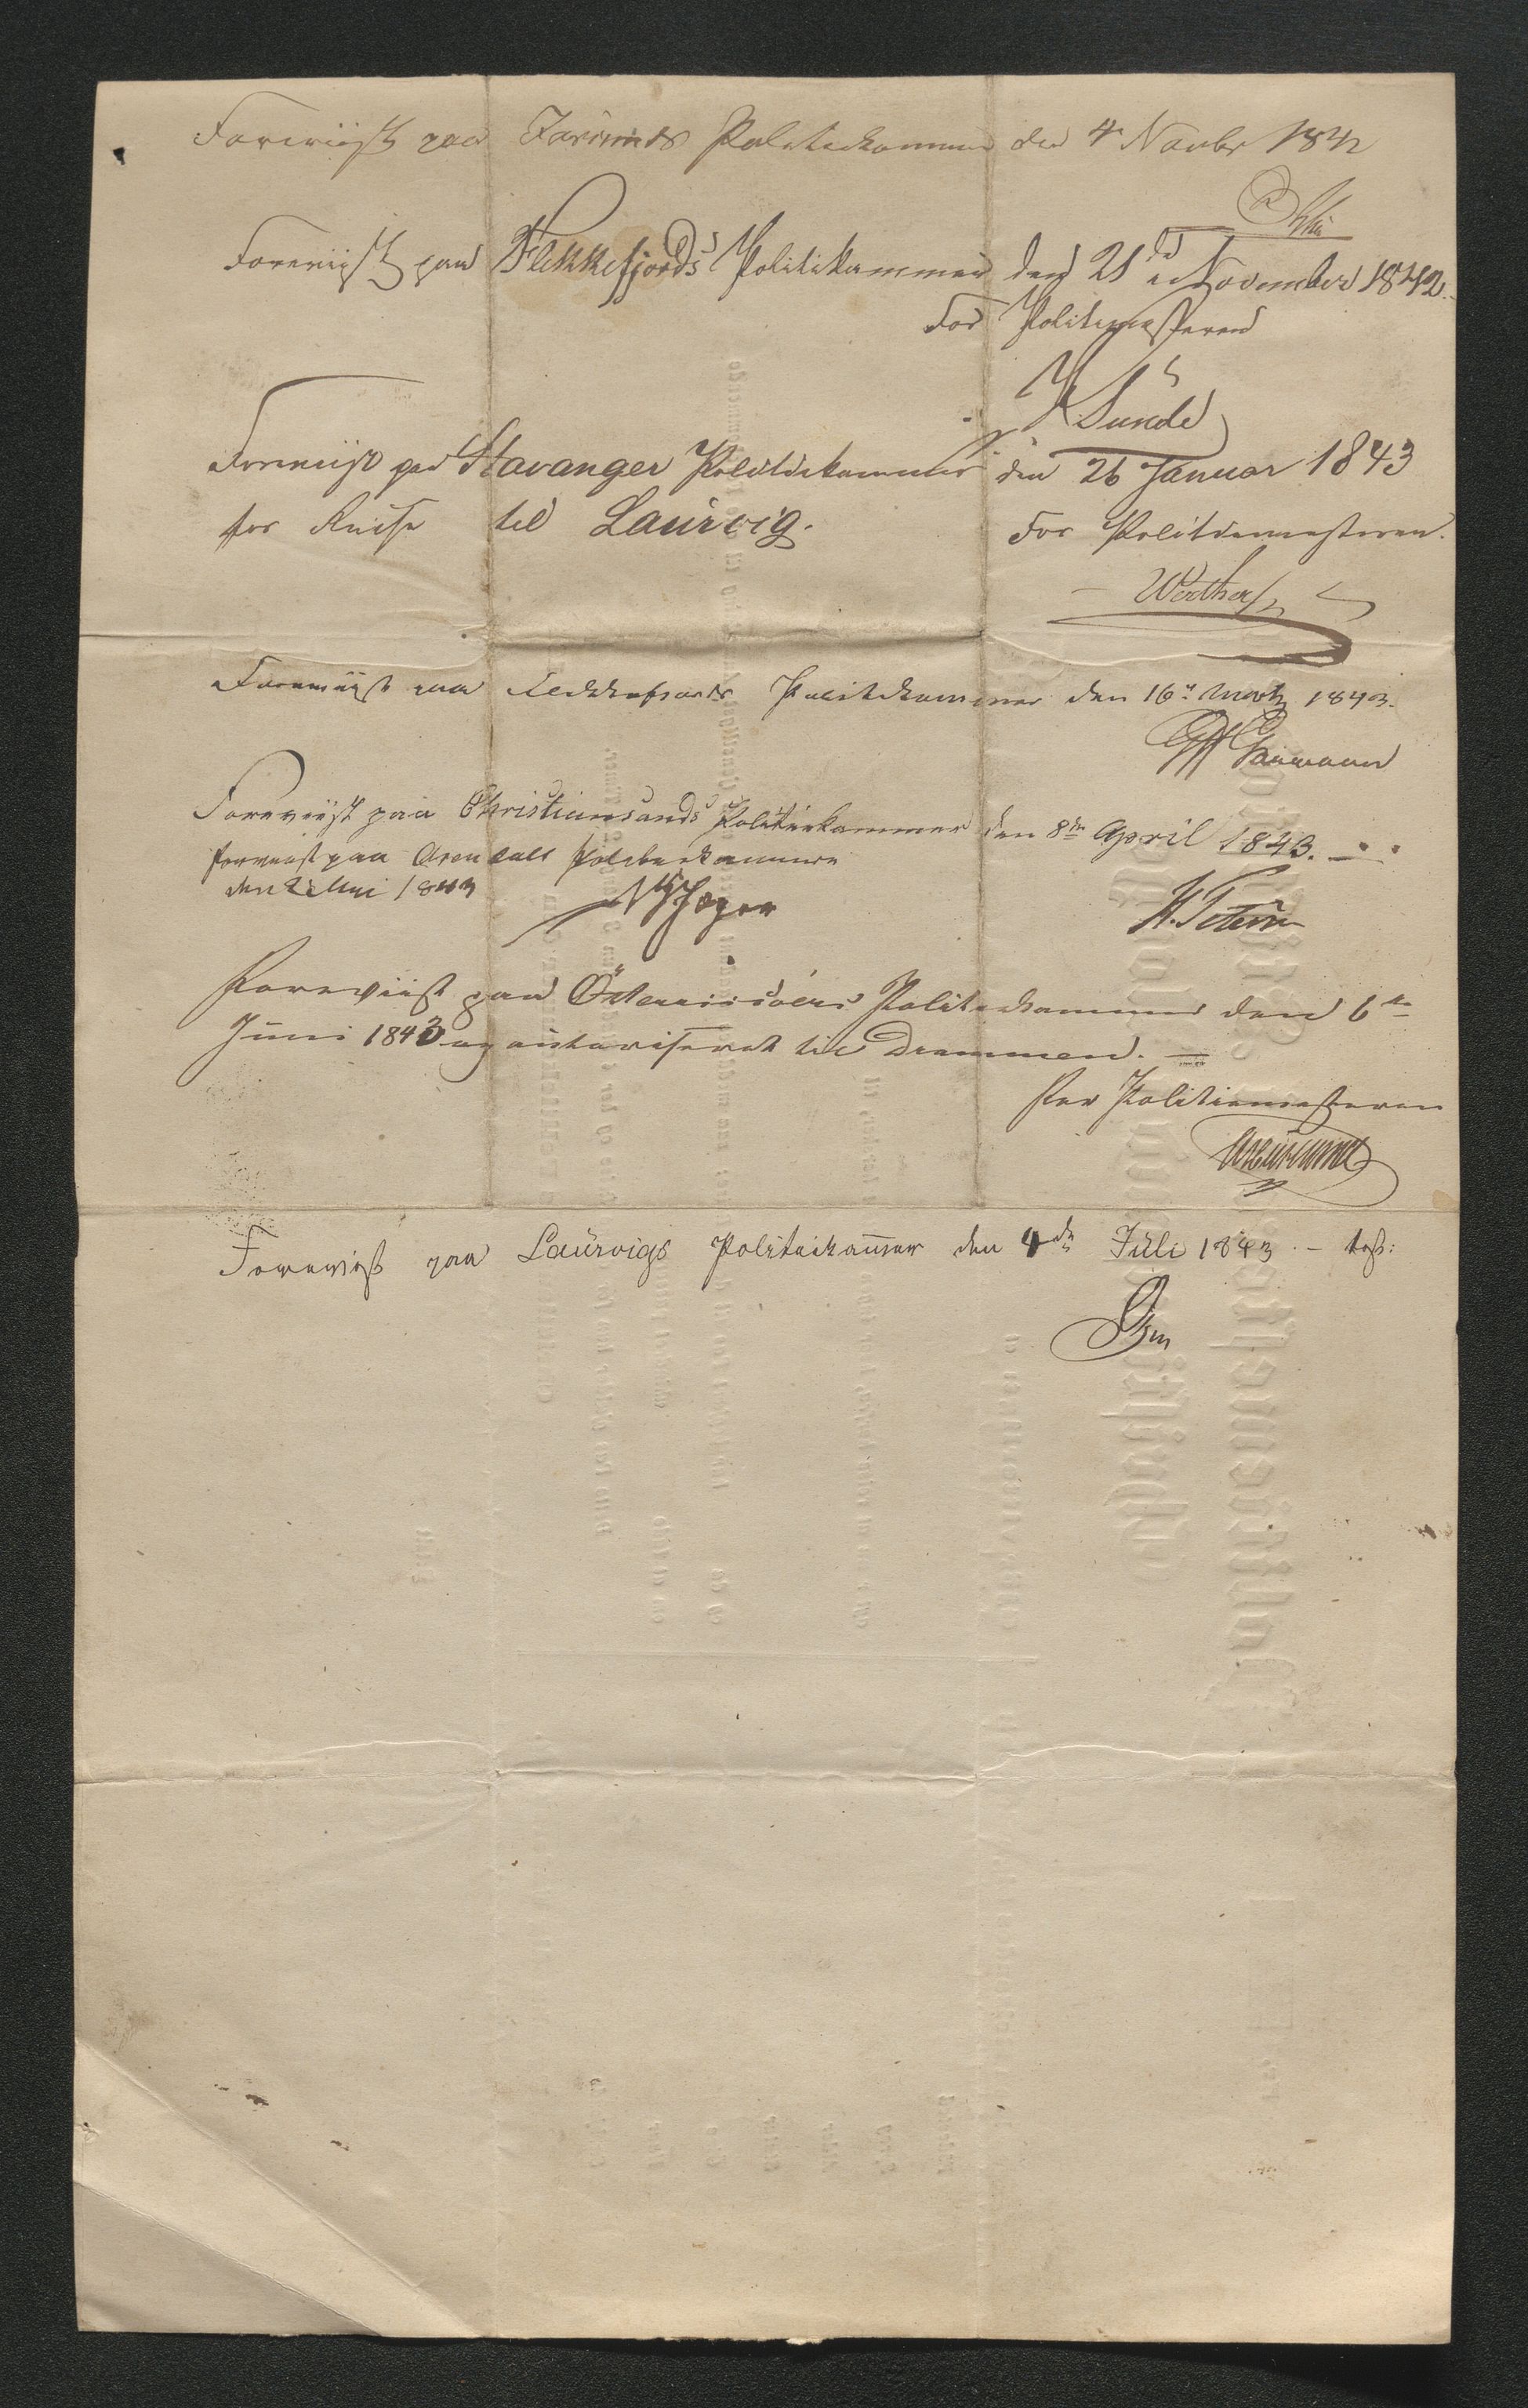 Foreviist paa Farsunds Politiekammer den 4 Novbr 1842
Foreviist paa Flekkefjords Politikammer den 21de November 1842.
For Politimesteren
K Sunde
Foreviist paa Stavanger Politiekammer den 26 Januar 1843
for Reise til Laurvig. For Politiemesteren.
Foreviist paa Flekkefjords Politiekammer den 16de Marts 1843.
Foreviist paa Christiansands Politiekammer den 8de April 1843.
foreviist paa Arendals Politiekammer
den 2 Mai 1843
Foreviist paa Österriisöers Politiekammer den 6te
Juni 1843 og auctoriseret til Drammen.
For Politiemesteren
Foreviist paa Laurvigs Politiekammer den 4de Juli 1843. -